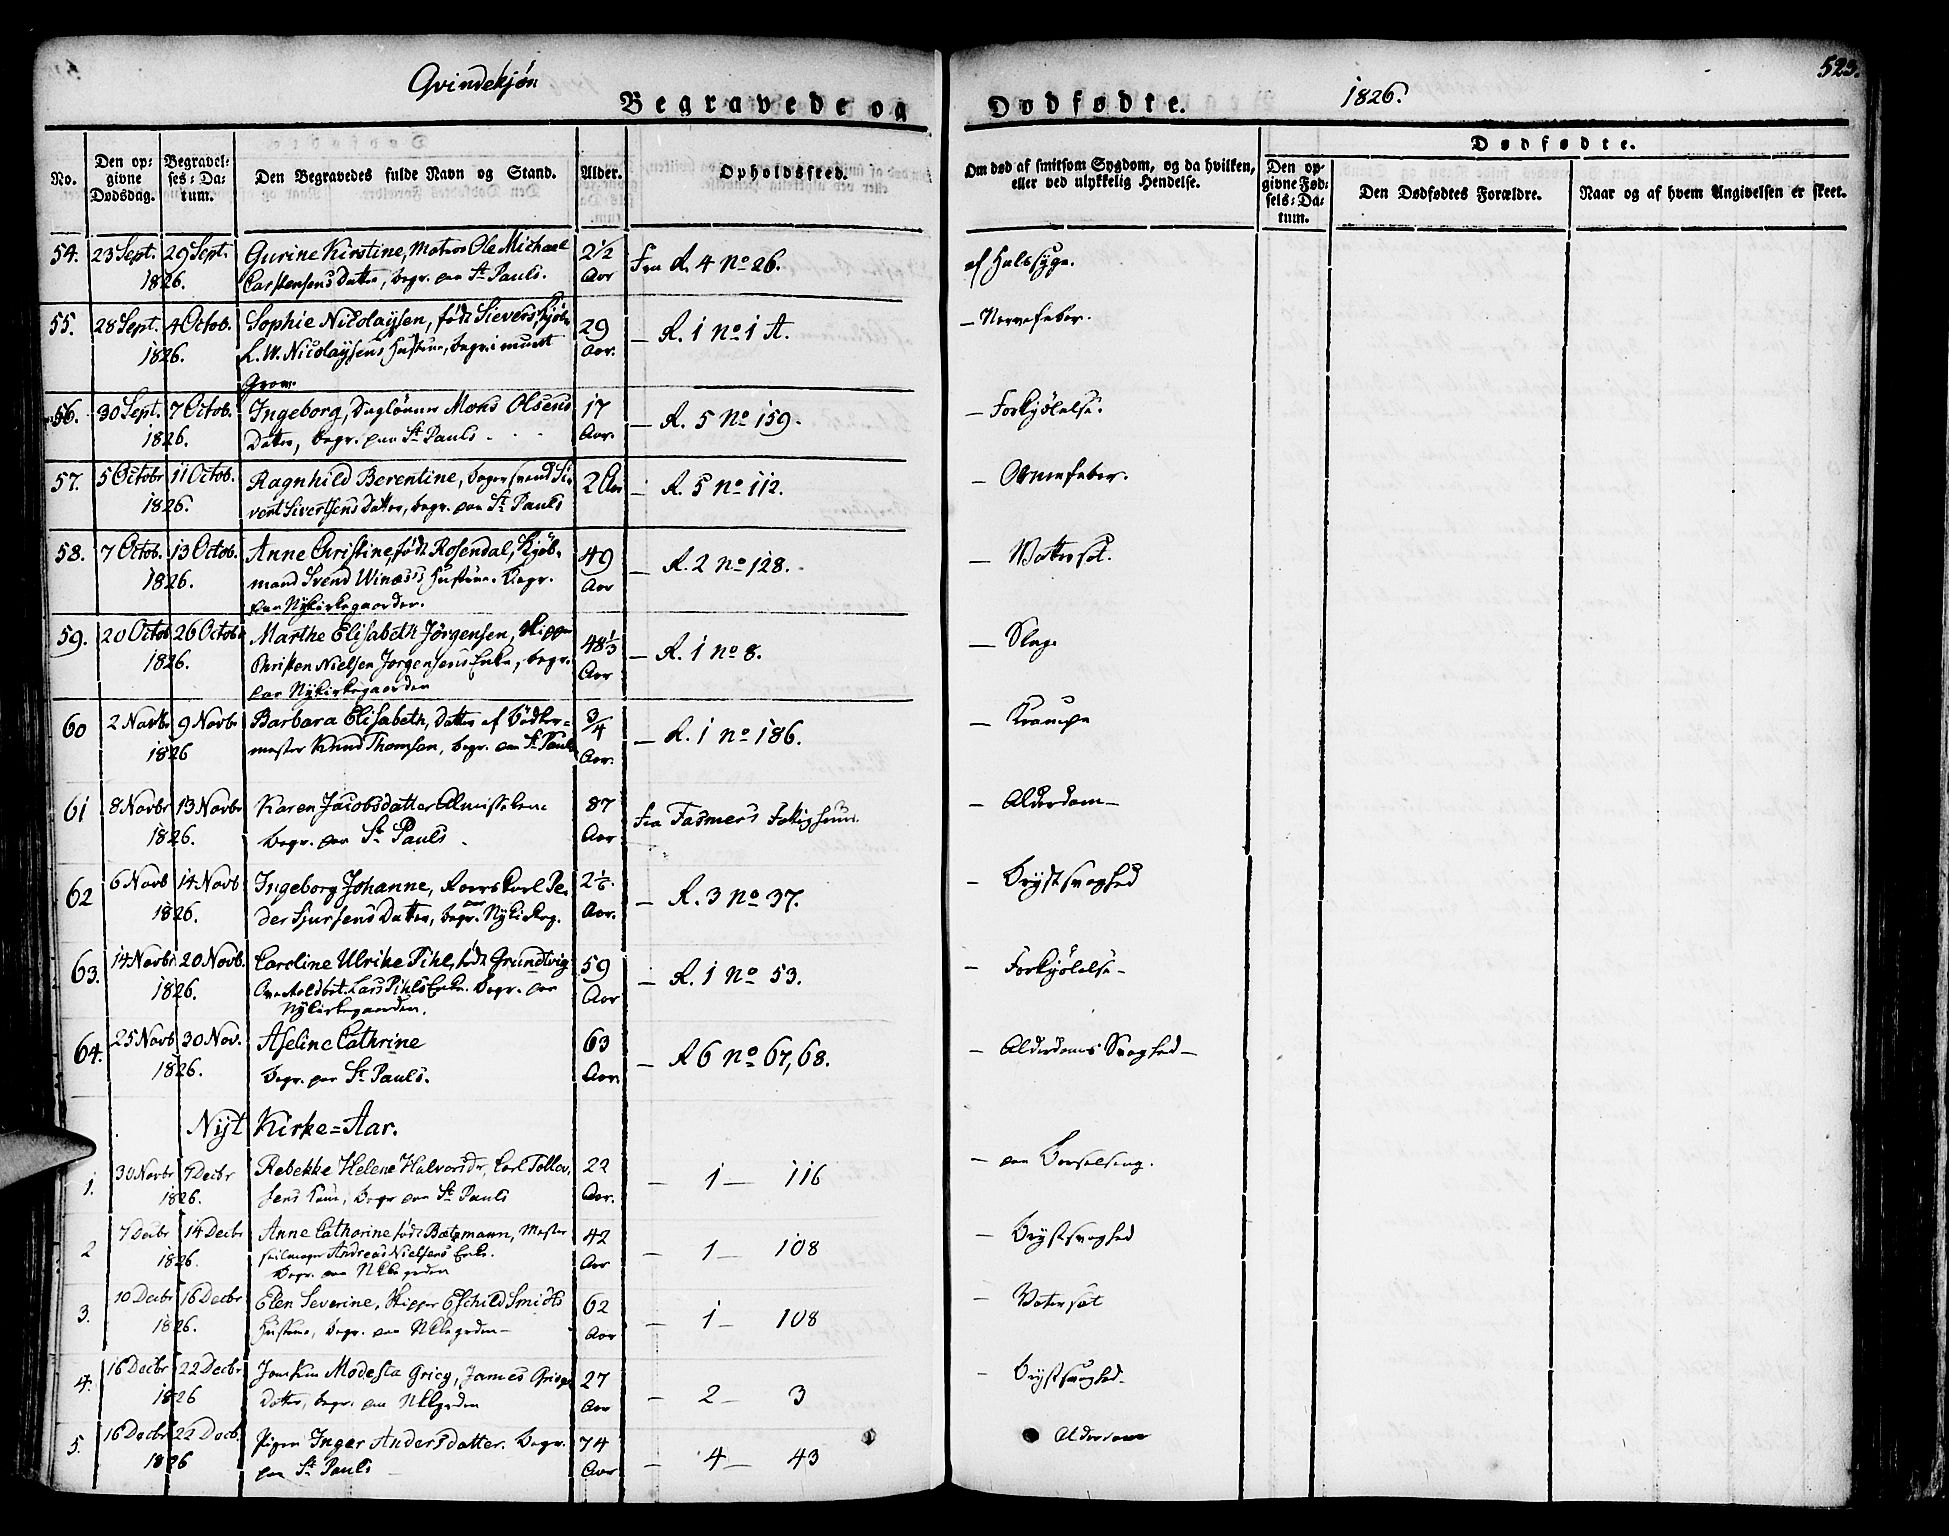 Qvindekjøn
Begravede og Dødfødte. 1826. 523.
No. Den opgivne Dødsdag. Begravelses-Datum. Den Begravedes fulde Navn og Stand. Alder. Opholdssted. Om død af smitsom Sygdom, og da hvilken, eller ved ulykkelig Hendelse. Dødfødte. Den opgivne Fødsels-Datum. Den Dødfødtes Forældre. Naar og af hvem Angivelsen er skeet.
54. 23 Sept. 29 Sept. Gurine Kirstine, Matros Ole Michael 2½ Fra R. 4 No 26. af Halssyge.
1826. Carstensens Datter, begr. paa St. Pauls. Aar
55. 28 Sept. 4 Octob. Sophie Nicolaysen, født Sievers Kjøbm. 29 — R. 1 No 1 A. — Nervefeber.
1826. L. W. Nicolaysens Hustrue, begr. i muret Aar.
Grav.
56. 30 Sept. 7 Octob. Ingeborg, Dagleier Mons Olsens 17 — R. 5 No 159. — Forkjølelse.
1826. Datter, begr. paa St. Pauls. Aar.
57. 5 Octobr 11 Octob. Ragnhild Berentine, Bagersvend Si- 2 Aar — R. 5 No 112. — Ormefeber.
1826. vert Sivertsens Datter, begr. paa St. Pauls
58. 7 Octob. 13 Octob. Anne Christine, født Rosendal, Kjøb- 49 — R. 2 No 128. — Vattersot.
1826. mand Svend Hustrue. Begr. Aar
paa Nykirkegaarden.
59. 20 Octob 26 Octob Marthe Elisabeth Jörgensen, Skipper 48⅓ — R. 1 No 8. — Slag
1826. Christen Nielsen Jörgensens Enke, begr. Aar
paa Nykirkegaarden
60 2 Novbr 9 Novbr Barbara Elisabeth, Datter af Bödker- 3/4 — R. 1 No 186. — Krampe
1826 mester Knud Thomsen, begr. paa St. Pauls Aar.
61 8 Novbr 13 Novbr Karen Jacobsdatter Almisselem 87 fra Fasmers Fattighuus. — Alderdom —
1826. begr. paa St. Pauls. Aar
62 6 Novb 14 Novb Ingeborg Johanne, Roerskarl Pe- 2 1/6. — R. 3 No 37. — Brystsvaghed
1826. der Sjursens Datter, begr. paa Nykirkeg. Aar.
63. 14 Novbr 20 Novbr. Caroline Ulrike Pihl, født Grundtvig 59 — R. 1 No 53. — Forkjølelse —
1826. Lars Pihls Enke. Begr. paa Aar
Nykirkegaarden.
64. 25 Novb 30 Nov. Aseline Cathrine 63 — R 6 No 67, 68. — Alderdoms Svaghed —
1826. Begr. paa St. Pauls. Aar.
Nyt Kirke=Aar.
1. 30 Novbr 7 Decbr Rebekke Helene Halvorsdr, Carl Tollev- 22 — 1 — 116 — paa Barselseng.
1826. sens Kone, Begr paa St. Pauls Aar.
2 7 Decbr 14 Decbr Anne Cathrine født Botzmann, Mester 42 — 1 — 108 — Brystsvaghed
1826. seilmager Andreas Nielsens Enke. Aar
Begr. paa NKkegrden
3. 10 Decbr 16 Decbr Elen Severine, Skipper Eschild Smidts 62 — 1 — 108 — Vatersot
1826. Hustrue, begr. paa NKkegrden — Aar
4. 16 Decbr 22 Decbr Modesta Grieg, James Griegs 27 — 2 — 3 — Brystsvaghed.
1826 Datter, begr. paa NKkegrden Aar
5. 16 Decbr 22 Decb. Pigen Inger Andersdatter. Begr. 74 — 4 — 43 Alderdom
1826 paa St. Pauls Aar